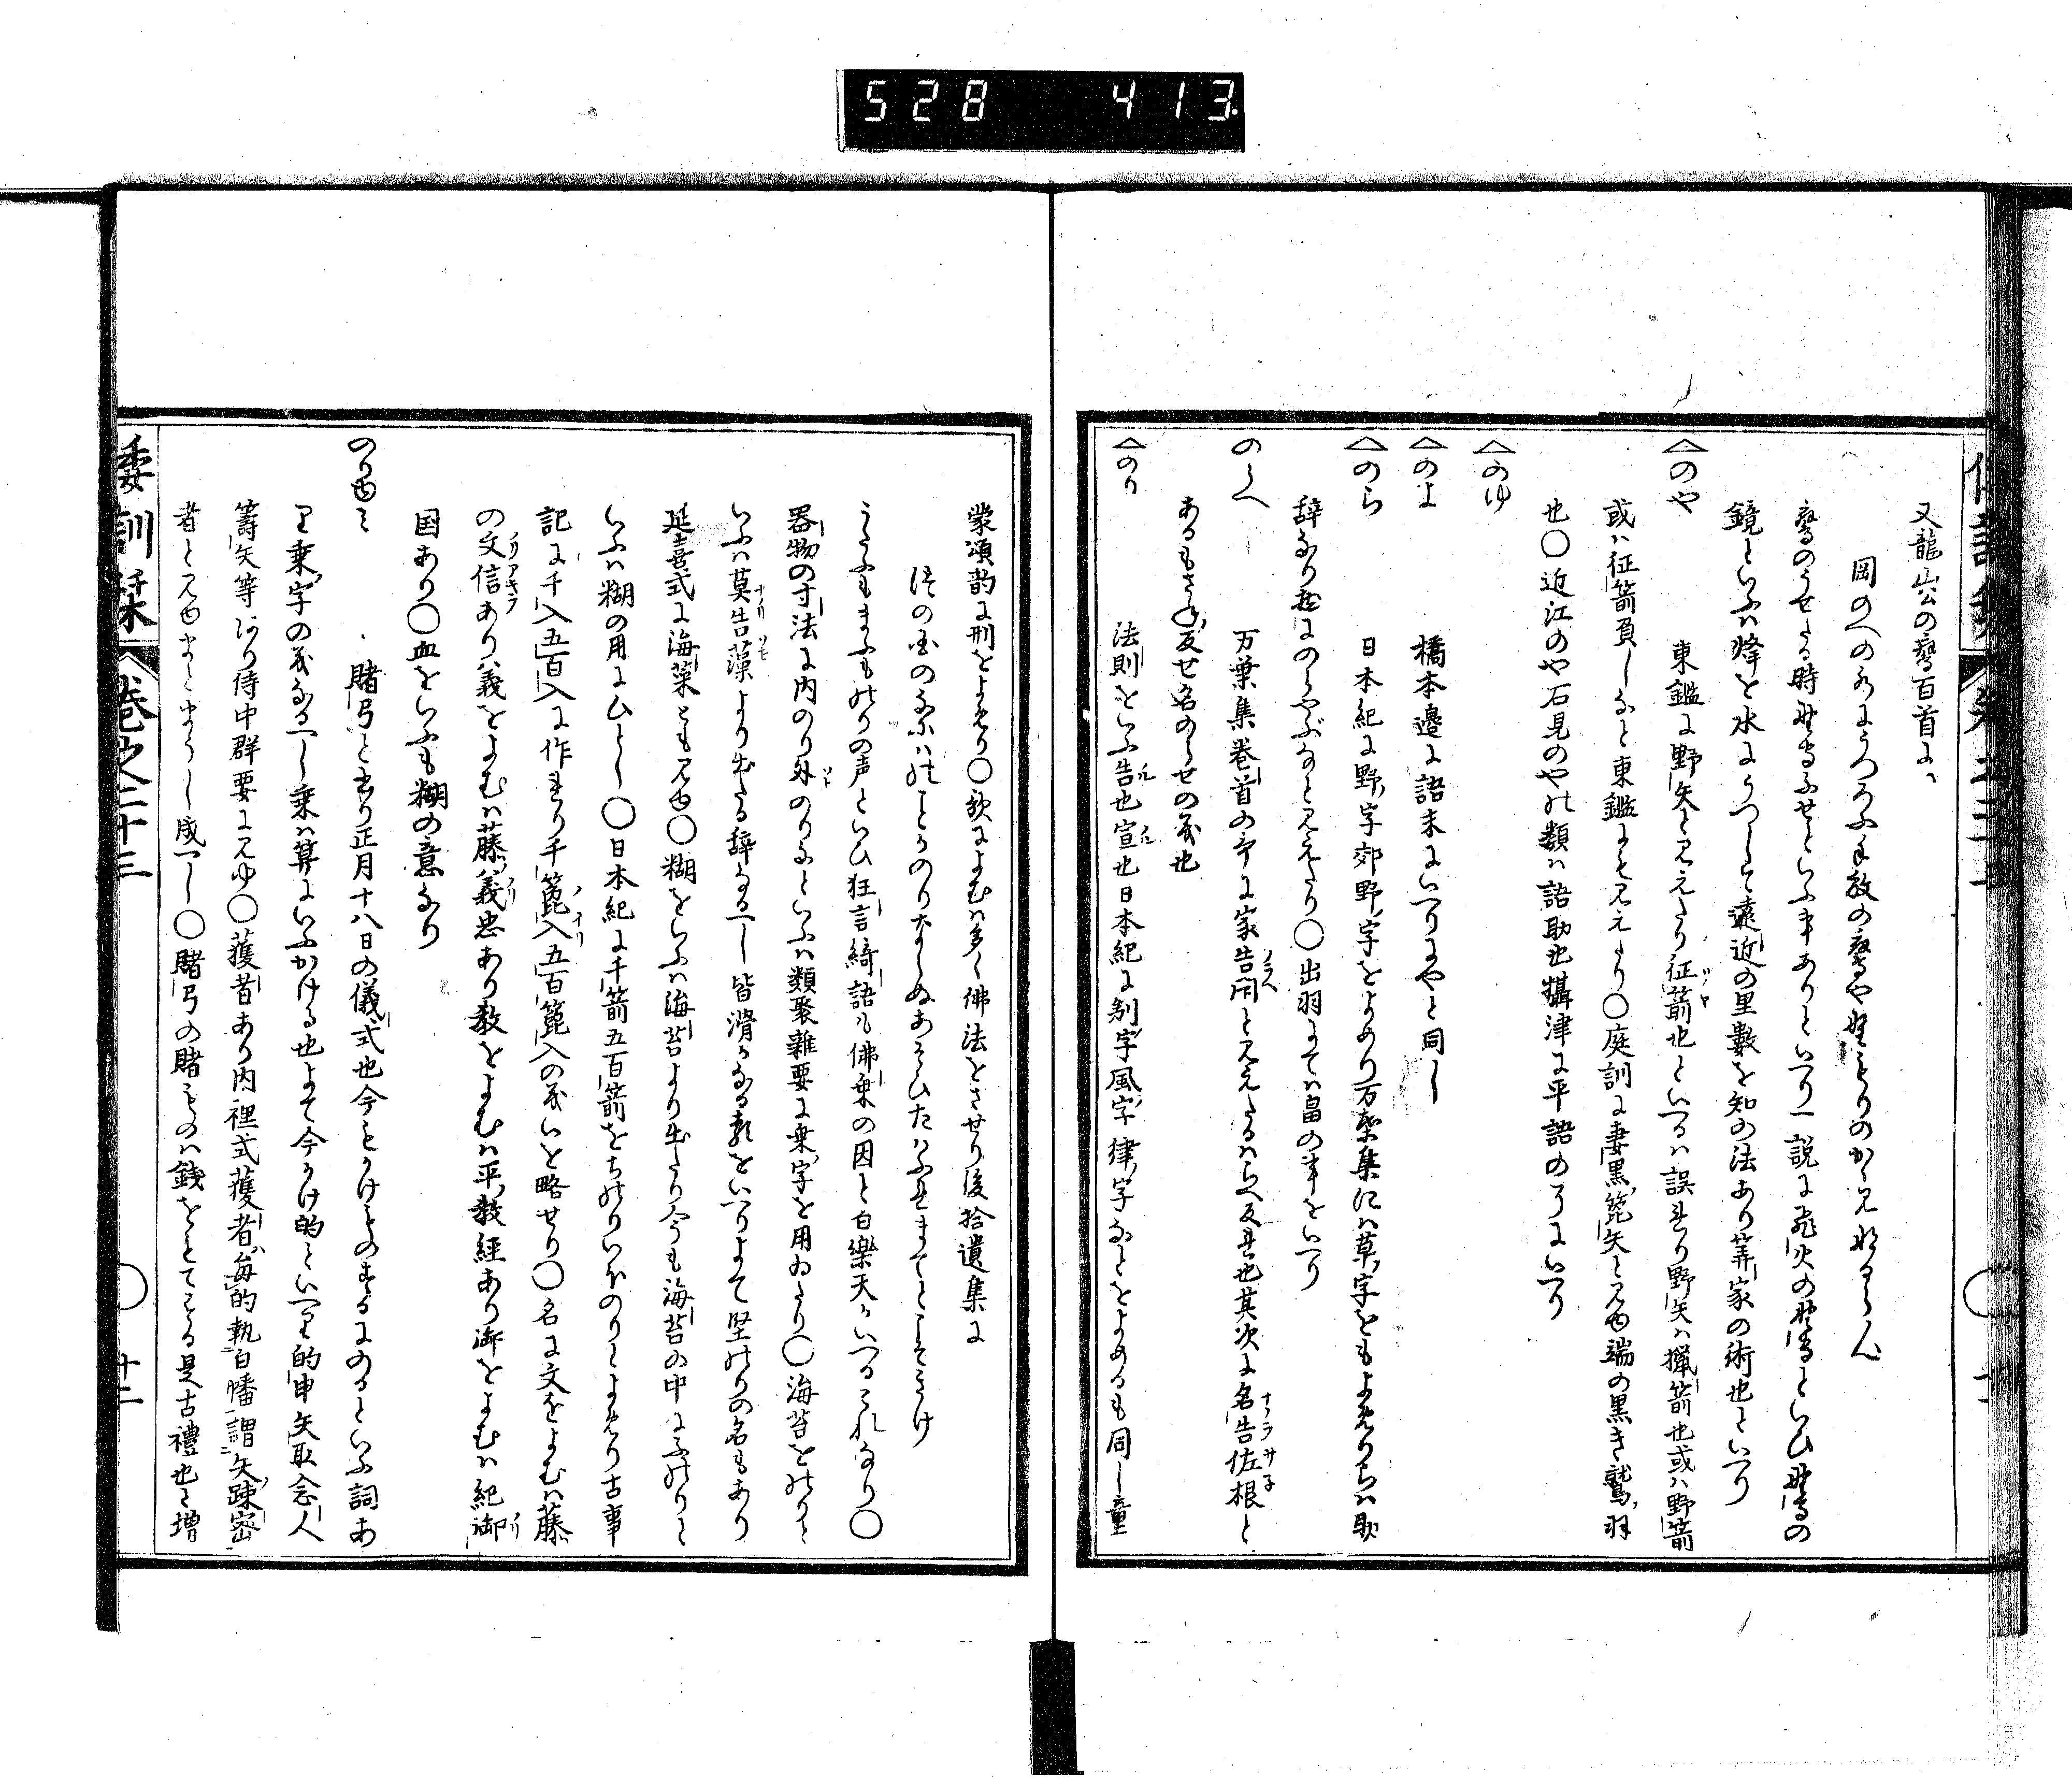 528 413
又龍山公の鷹百首に
岡のへの水にうつろふ手放の鷹や野もりのかゝみなるらん
鷹のうせたる時野守ふせといふ事ありといへり一説に飛火の野守といひ野守の
鏡といふは烽を水にうつして遠近の里數を知の法あり筭家の術也といへり
△のや 東鑑に野矢と見えたり征箭也といへるは誤れり野矢は獵箭也或は野箭
或は征箭負しなと東鑑にも見えたり○庭訓に妻黒箆矢と見ゆ端の黒き鷲羽
也○近江のや石見のやの類は語助也攝津に平語の了にいへり
△のゆ
△のよ 橋本邊に語末にいへりにやと同し
△のら 日本紀に野字郊野字をよめり万葉集には草字をもよめりらは助
辞なり
のらへ 万葉集巻首の
あるもさね反せ名のらせの義也
△のり 法則をいふ告也宣也日本紀に制字風字律字なとをよめるも同し童
蒙頌韵に刑をよめり○歌によむは多く佛法をさせり後拾遺集に
津の国のなにはのことかのりならぬあそひたはふれまてとこそきけ
うたふもまふものりの声といひ狂言綺語も佛乗の因と白樂天かいへるこれなり○
器物の寸法に内のり外のりなといふは類聚雜要に乗字を用ゐたり○海苔をのりと
いふは莫告藻より出たる辞なるへし皆滑かなる類をいへりよて堅のりの名もあり
延喜式に海藻とも見ゆ○糊をいふは海苔より出たり今も海苔の中にふのりと
いふは糊の用にひとし○日本紀に千箭五百箭をちのりいほのりとよめり古事
記に千入五百入に作れり千箆入五百箆入の義いを略せり○名に文をよむは藤
の文信あり義をよむは藤義忠あり教をよむは平教經あり御をよむは紀御
国あり○血をいふも糊の意なり
のりゆミ 賭弓と書り正月十八日の儀式也今もかけものするにのるといふ詞あ
り乗字の義なるへし乗は算にいふかける也よて今かけ的といへり的申矢取念人
籌矢等あり侍中群要に見ゆ○獲者あり内裡式獲者毎的執白幡謂矢疎密
者と見ゆ
倭訓栞 巻之二十三 ○ 十二